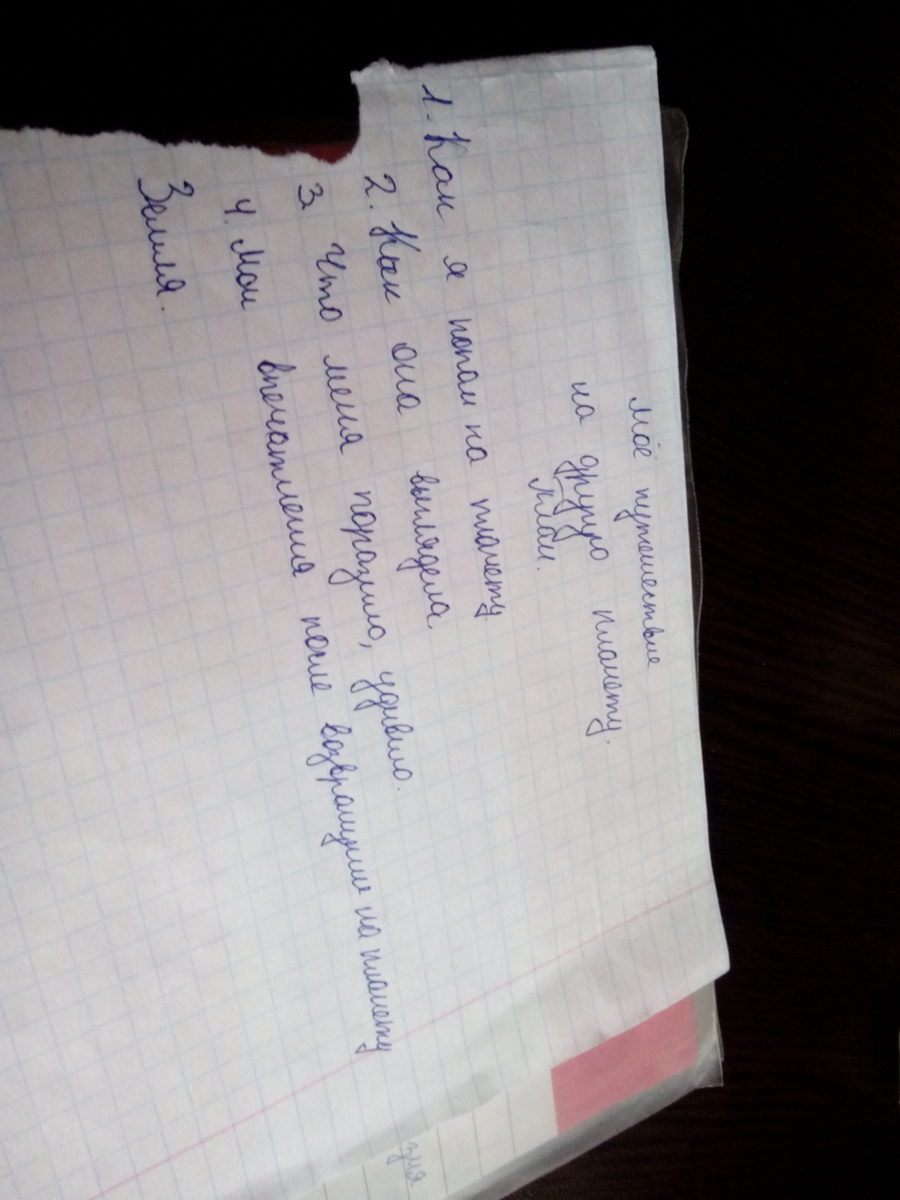 Моё путешествие
на другую планету.
План.
1. Как я попал на планету.
2. Как она выглядела.
3. Что меня поразило, удивило.
4. Мои впечатления после возвращения на планету
Земля.
зия